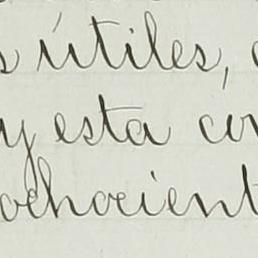 s útiles,
y esta
ochocient